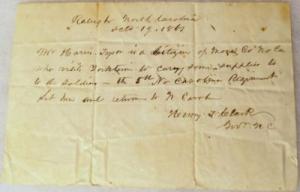 Raleigh North Carolina
Oct 19. 1861
Mr Harris Tyson is a Citizen of Moore Co No Ca
who visits Yorktown to carry some supplies to
to a Soldier in the 5th No Carolina Regiment
Let him and return to N Caroli
Henry T. Clark
Gov. N C